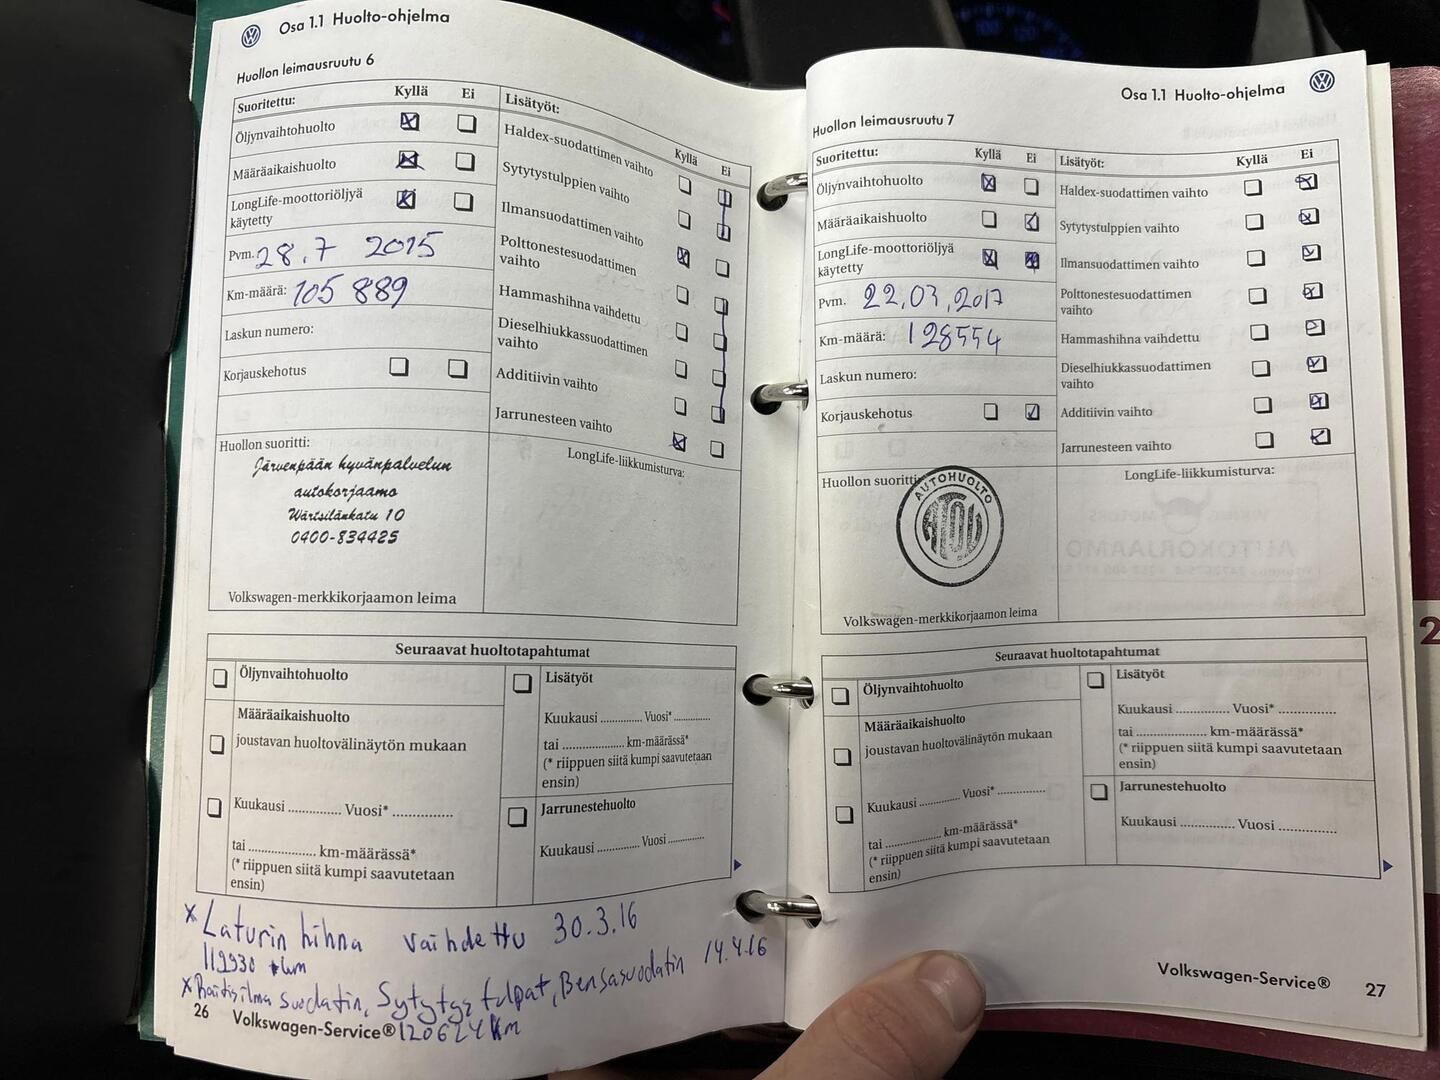 Osa 1.1 Huolto-ohjelma
Huollon leimausruutu 6
Suoritettu: Kyllä Ei
Öljynvaihtohuolto
Määräaikaishuolto
LongLife-moottoriöljyä
käytetty
Pvm. 28.7 2015
Km-määrä: 105 889
Laskun numero:
Korjauskehotus
Lisätyöt: Kyllä Ei
Haldex-suodattimen vaihto
Sytytystulppien vaihto
Ilmansuodattimen vaihto
Polttonestesuodattimen
vaihto
Hammashihna vaihdettu
Dieselhiukkassuodattimen
vaihto
Additiivin vaihto
Jarrunesteen vaihto
Huollon suoritti:
Järvenpään hyvänpalvelun
autokorjaamo
Wärtsilänkatu 10
0400-834425
Volkswagen-merkkikorjaamon leima
LongLife-liikkumisturva:
Seuraavat huoltotapahtumat
Öljynvaihtohuolto
Määräaikaishuolto
joustavan huoltovälinäytön mukaan
Kuukausi .............. Vuosi* ................
tai .................... km-määrässä*
(* riippuen siitä kumpi saavutetaan
ensin)
Lisätyöt
Kuukausi .............. Vuosi* ............
tai .................... km-määrässä*
(* riippuen siitä kumpi saavutetaan
ensin)
Jarrunestehuolto
Kuukausi .............. Vuosi ............
x Laturin hihna vaihdettu 30.3.16
119930 km
x Raitisilma suodatin, Sytytys tulpat, Bensasuodatin 14.4.16
120624 km
26 Volkswagen-Service®
Osa 1.1 Huolto-ohjelma
Huollon leimausruutu 7
Suoritettu: Kyllä Ei
Öljynvaihtohuolto
Määräaikaishuolto
LongLife-moottoriöljyä
käytetty
Pvm. 22.03.2017
Km-määrä: 128554
Laskun numero:
Korjauskehotus
Lisätyöt: Kyllä Ei
Haldex-suodattimen vaihto
Sytytystulppien vaihto
Ilmansuodattimen vaihto
Polttonestesuodattimen
vaihto
Hammashihna vaihdettu
Dieselhiukkassuodattimen
vaihto
Additiivin vaihto
Jarrunesteen vaihto
Huollon suoritti
AUTOHUOLTO
Volkswagen-merkkikorjaamon leima
LongLife-liikkumisturva:
Seuraavat huoltotapahtumat
Öljynvaihtohuolto
Määräaikaishuolto
joustavan huoltovälinäytön mukaan
Kuukausi ............ Vuosi* ..............
tai .................... km-määrässä*
(* riippuen siitä kumpi saavutetaan
ensin)
Lisätyöt
Kuukausi ................ Vuosi* ................
tai .................... km-määrässä*
(* riippuen siitä kumpi saavutetaan
ensin)
Jarrunestehuolto
Kuukausi ................ Vuosi ................
Volkswagen-Service® 27
2